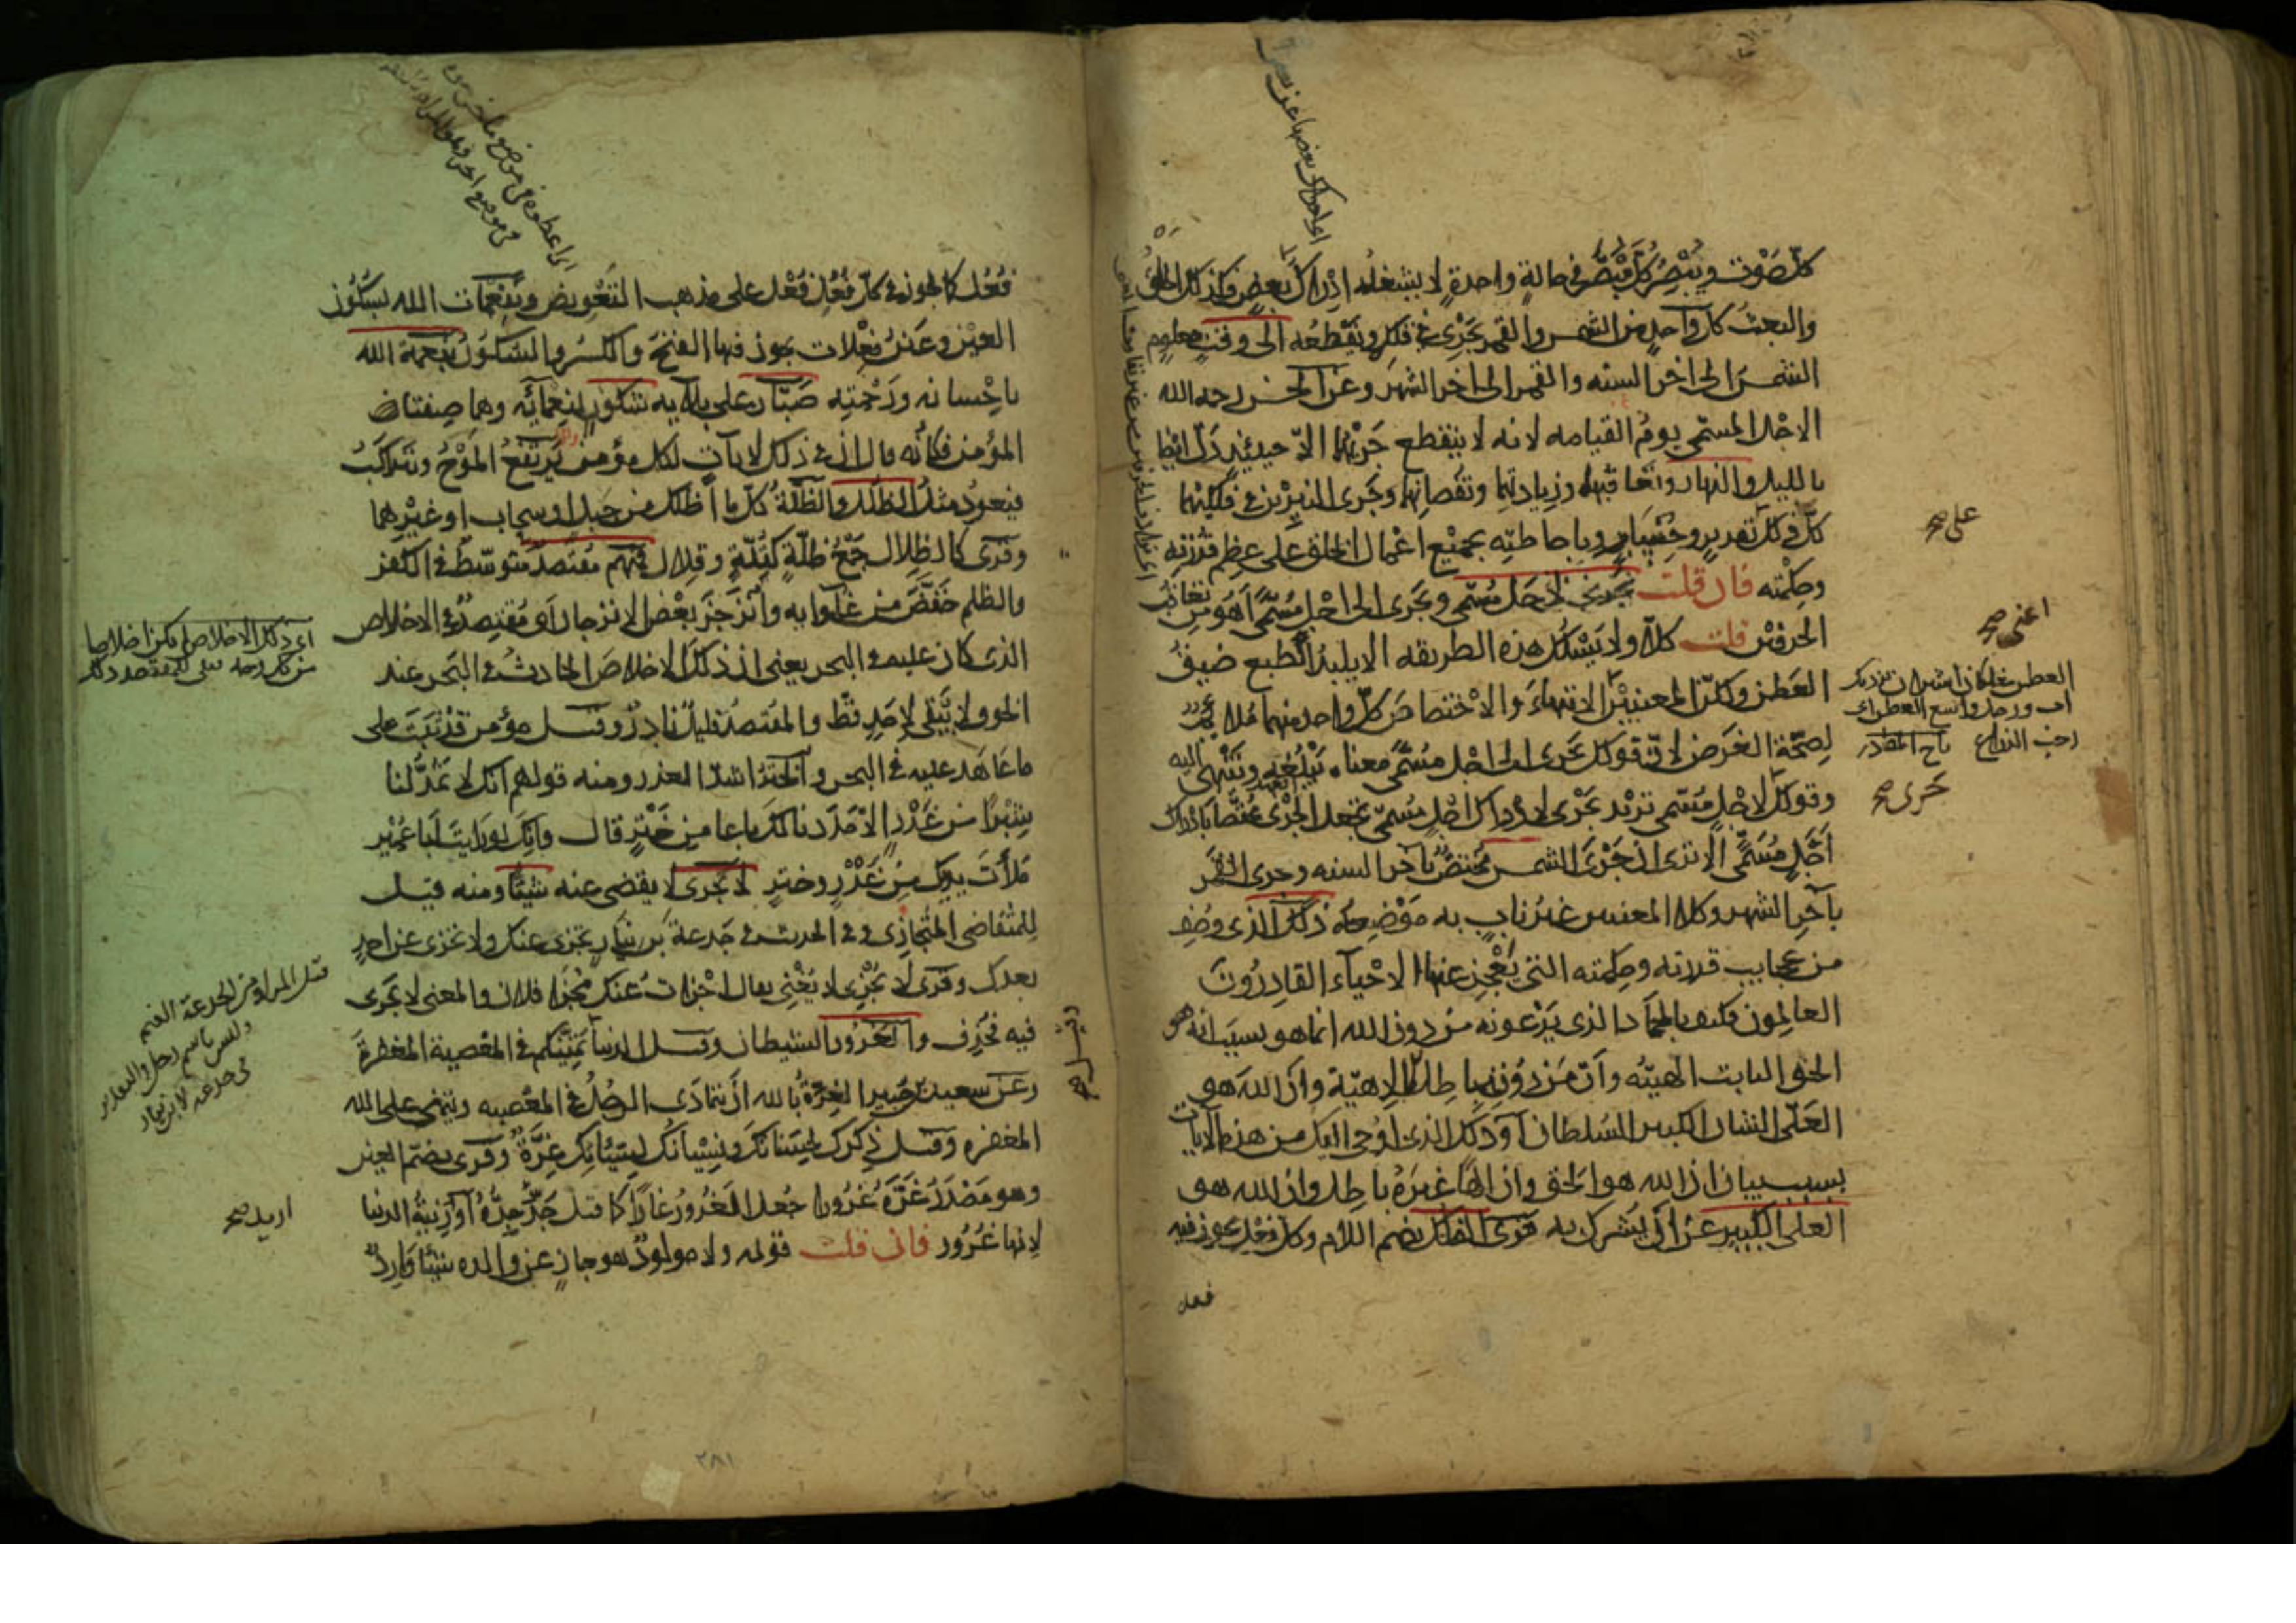 كل صوت ويبصر كل مبصر في حالة واحدة لا يشغله ادراك بعض فكذلك الخلق
والبعث كل واحد من الشمس والقمر يجري في فلكه ويقطعه الى وقت معلوم
الشمس الى اخر السنه والقمر الى اخر الشهر وعن الحسن رحمه الله
الاجل المسمى يوم القيامه لانه لا ينقطع جريهما الا حينئذ دل ايضا
بالليل والنهار وتعاقبهما وزيادتهما ونقصانهما وجرى النيرين في فلكيهما
كل ذلك تقدير وحساب وباحاطته بجميع اعمال الخلق على عظم قدرته
وحكمته فان قلت يجري لاجل مسمى ويجرى الى اجل مسمى اهو من تعاقب
الحرفين قلت كلا ولا يسلك هذه الطريقه الا بليد الطبع ضيق
العطن ولكن المعنيين الانتهاء والاختصاص كل واحد منهما ملايم
لصحة الغرض لان قولك يجرى الى اجل مسمى معناه يبلغه وينتهى اليه
وقولك لاجل مسمى تريد يجرى لادراك اجل مسمى تجعل الجرى مختصا بادراك
اجل مسمى الا ترى ان جرى الشمس مختص بآخر السنه وجرى القمر
بآخر الشهر وكلا المعنيين غير ناب به موضعه ذلك الذى وصف
من عجايب قدرته وحكمته التي يعجز عنها الاحياء القادرون
العالمون فكيف بالجماد الذى يدعونه من دون الله انما هو بسبب انه هو
الحق الثابت الهيته وان من دونه باطل الالاهية وان الله هو
العلى الشان الكبير السلطان او ذلك الذى اوحى اليك من هذه الايات
بسبب بيان ان الله هو الحق وان الها غيره باطل وان الله هو
العلى الكبير عن ان يشرك به قرى الفلك بضم اللام وكل فعل يجوز فيه
فعل
على صح
اعنى صح
جرى صح
فعل كما يجوز في كل فعل فعل على مذهب التعويض وبنعمات الله بسكون
العين وعين فعلات يجوز فيها الفتح والكسر والسكون بنعمة الله
باحسانه ورحمته صبار على بلايه شكور لنعمائه وهما صفتا
المؤمن فكانه قال ان في ذلك لايات لكل مؤمن يرتفع الموج ويتراكب
فيعود مثل الظلل والظلة كل ما اظلك من جبل او سحاب او غيرهما
وقرى كالظلال جمع ظلة كقلة وقلال فمنهم مقتصد متوسط في الكفر
والظلم خفض من غلوايه وانزجر بعض الانزجار او مقتصد في الاخلاص
الذى كان عليه في البحر يعنى ان ذلك الاخلاص الحادث في البحر عند
الخوف لا يبقى لاحد قط والمقتصد قليل نادر وقيل مؤمن قد ثبت على
ما عاهد عليه في البحر والختر اشد الغدر ومنه قولهم انك لا تمد لنا
شبرا من غدر الا مددنا لك باعا من ختر قال وانك لو رايت ابا عمير
ملأت يديك من غدر وختر لا يجرى لا يقضى عنه شيئا ومنه قيل
للمتقاضى المتجازى وفي الحديث في جذعة بن نيار تجزى عنك ولا تجزى عن احد
بعدك وقرى لا يجزى لا يغنى يقال اجزات عنك مجزا فلان والمعنى لا يجزى
فيه فحذف والغرور الشيطان وقيل الدنيا تمنيكم في المعصية المغفرة
وعن سعيد بن جبير الغرة بالله ان يتمادى الرجل في المعصيه ويتمنى على الله
المغفره وقيل ذكرك لحسناتك ونسيانك لسيئاتك غرة وقرى بضم الغين
وهو مصدر غره غرورا جعل الغرور غارا كما قيل جد جده او زينة الدنيا
لانها غرور فان قلت قوله ولا مولود هو جاز عن والده شيئا وارد
اى ذلك الاخلاص
قيل المراد من الجذعة الغنم
وليس باسم رجل
اريد صح
٢٨١